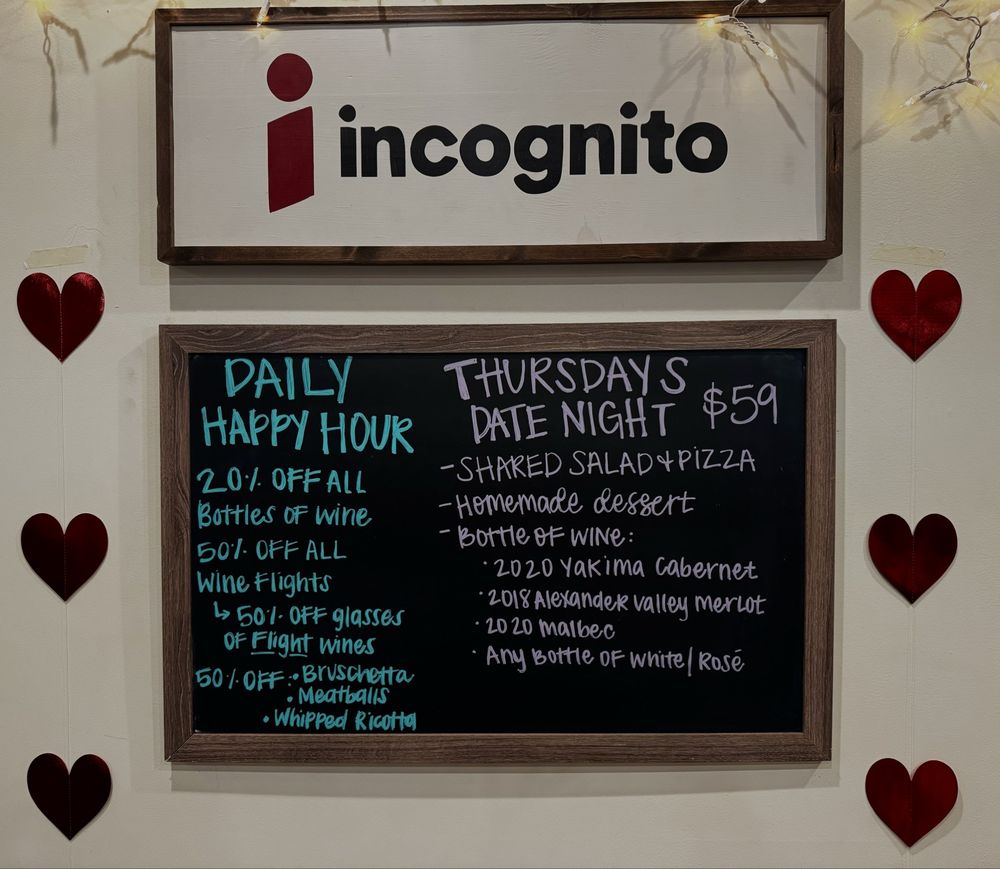 incognito
DAILY
HAPPY HOUR
20% OFF ALL
Bottles OF wine
50% OFF ALL
Wine Flights
↳ 50% OFF glasses
OF Flight wines
50% OFF: • Bruschetta
• Meatballs
• Whipped Ricotta
THURSDAYS
DATE NIGHT $59
- SHARED SALAD + PIZZA
- Homemade dessert
- Bottle OF WINE:
• 2020 Yakima Cabernet
• 2018 Alexander Valley Merlot
• 2020 Malbec
• Any Bottle OF White/Rosé